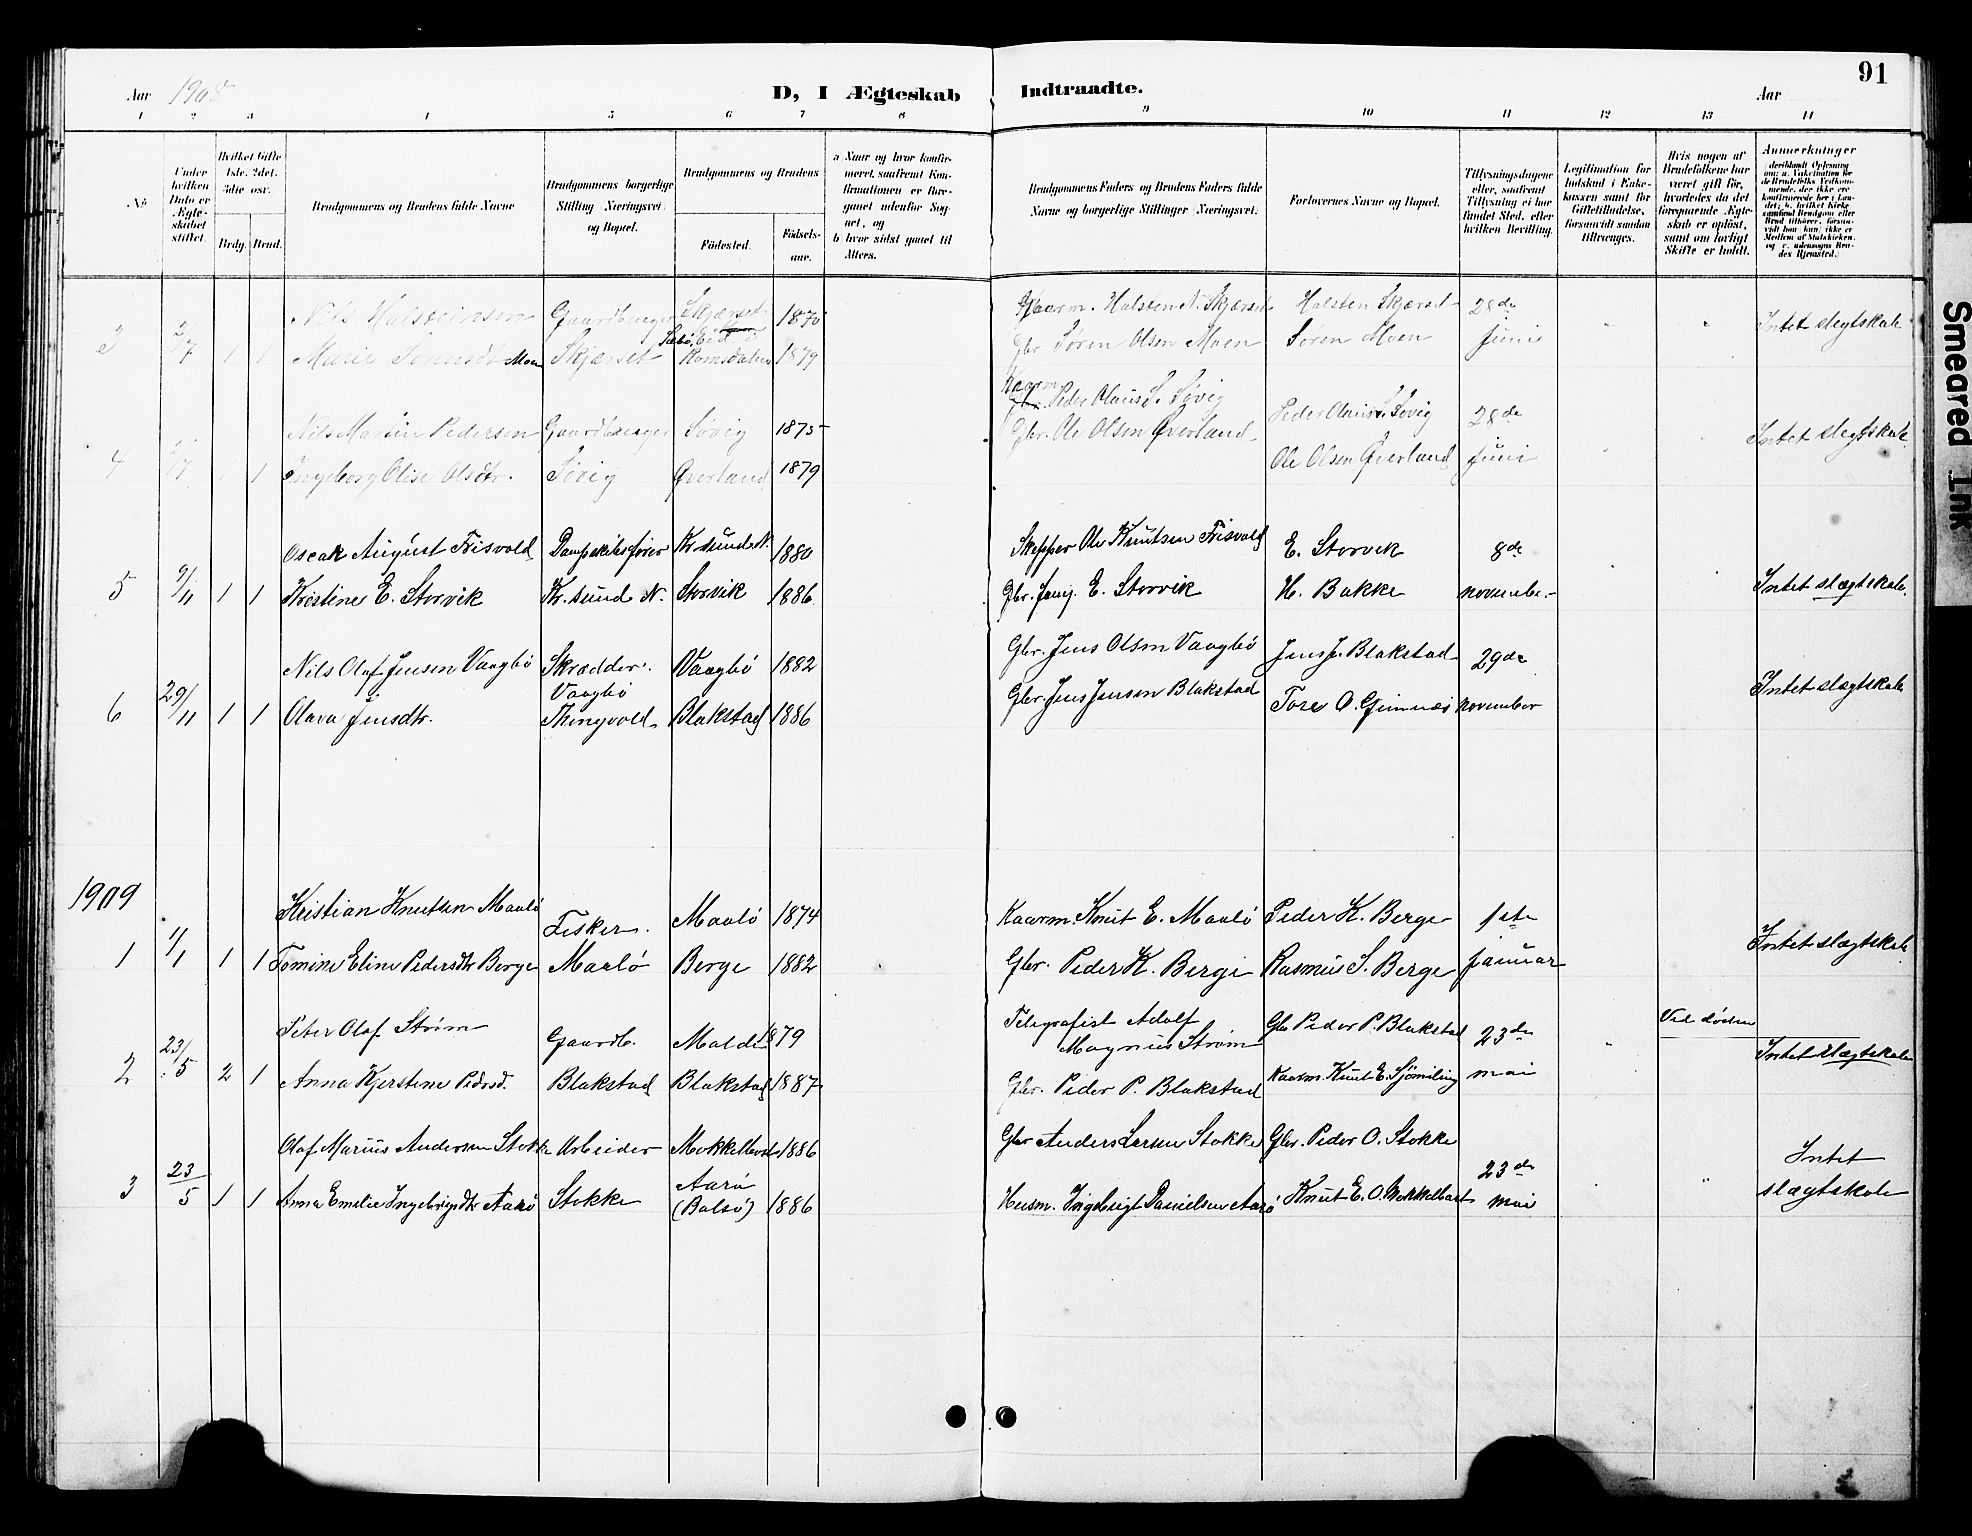 91
Aar 1908 D, I Ægteskab Indtraadte. Aar
1 2 3 4 5 6 7 8 9 10 11 12 13 14
No
Under hvilken Dato er Ægteskabet stiftet.
Hvilket Gifte 1ste, 2det, 3die osv.
Brdg. Brud.
Brudgommens og Brudens fulde Navne
Brudgommens borgerlige Stilling (Næringsvei) og Bopæl.
Brudgommens og Brudens
Fødested. Fødselsaar.
a Naar og hvor konfirmeret, saafremt Konfirmationen er foregaaet udenfor Sognet, og
b hvor sidst gaaet til Alters.
Brudgommens Faders og Brudens Faders fulde Navne og borgerlige Stillinger (Næringsvei).
Forlovernes Navne og Bopæl.
Tillysningsdagene eller, saafremt Tillysning ei har fundet Sted, efter hvilken Bevilling.
Legitimation for Indskud i Enkekassen samt for Giftetilladelse, forsaavidt saadan tiltrænges.
Hvis nogen af Brudefolkene har været gift før, hvorledes da det foregaaende Ægteskab er opløst, samt om lovligt Skifte er holdt.
Anmærkninger
Nils Halsteinsen Gaardbruger Skjærset 1870 Kaarm. Halsten N. Skjærset Halsten Skjærset 28de
3 2/7 1 1 Marie Sørensdt Moen Skjærset Romsdalen 1879 Gbr. Søren Olsen Moen Søren Moen juni Intet slegtskab
Kaarm
Nils Martin Pedersen Gaardbruger Søvig 1875 Gbr. Peder Olaus S. Søvig Peder Olaus S. Søvig 28de
4 2/7 1 1 Ingeborg Olise Olsdtr. Søvig Øverland 1879 Gbr. Ole Olsen Øverland Ole Olsen Øverland juni Intet slegtskab
Oscar August Frisvold Dampskibsfører Kr.sund N. 1880 Skipper Ole Knutsen Frisvold E. Storvik 8de
5 9/11 1 1 Kristine E. Storvik Kr.sund N. Storvik 1886 Gbr. E. Storvik H. Bakke november Intet slægtskab.
Nils Olaf Jensen Vaagbø Skrædder. Vaagbø 1882 Gbr. Jens Olsen Vaagbø Jens J. Blakstad 29de
Vaagbø
6 29/11 1 1 Olava Jensdtr. Thingvold Blakstad 1886 Gbr. Jens Jensen Blakstad Tore O. Gimnes november Intet slægtskab
1909
Kristian Knutsen Maalø Fisker. Maalø 1874 Kaarm. Knut E. Maalø Peder K. Berge 1ste
1 1/1 1 1 Tomine Eline Pedersdtr Berge Maalø Berge 1882 Gbr. Peder K. Berge Rasmus S. Berge januar Intet slægtskab
Peter Olaf Strøm Gaardb. Molde 1879 Telegrafist Adolf Magnus Strøm Gbr Peder P. Blakstad 23de Ved døden
2 23/5 2 1 Anna Kjerstine Pedersd. Blakstad Blakstad 1887 Gbr. Peder P. Blakstad Kaarm. Knut E. Sjømæling mai Intet slægtskab
Olaf Marius Andersen Stokke Arbeider Mekkelbost 1886 Gbr Anders Larsen Stokke Gbr. Peder O. Stokke 23de Intet
3 23/5 1 1 Anna Emelie Ingebrigtsdtr Aarø Stokke Aarø (Bolsø) 1886 Husm. Ingebrigt Danielsen Aarø Knut E. O. Mekkelbost mai slægtskab
Smeared Ink